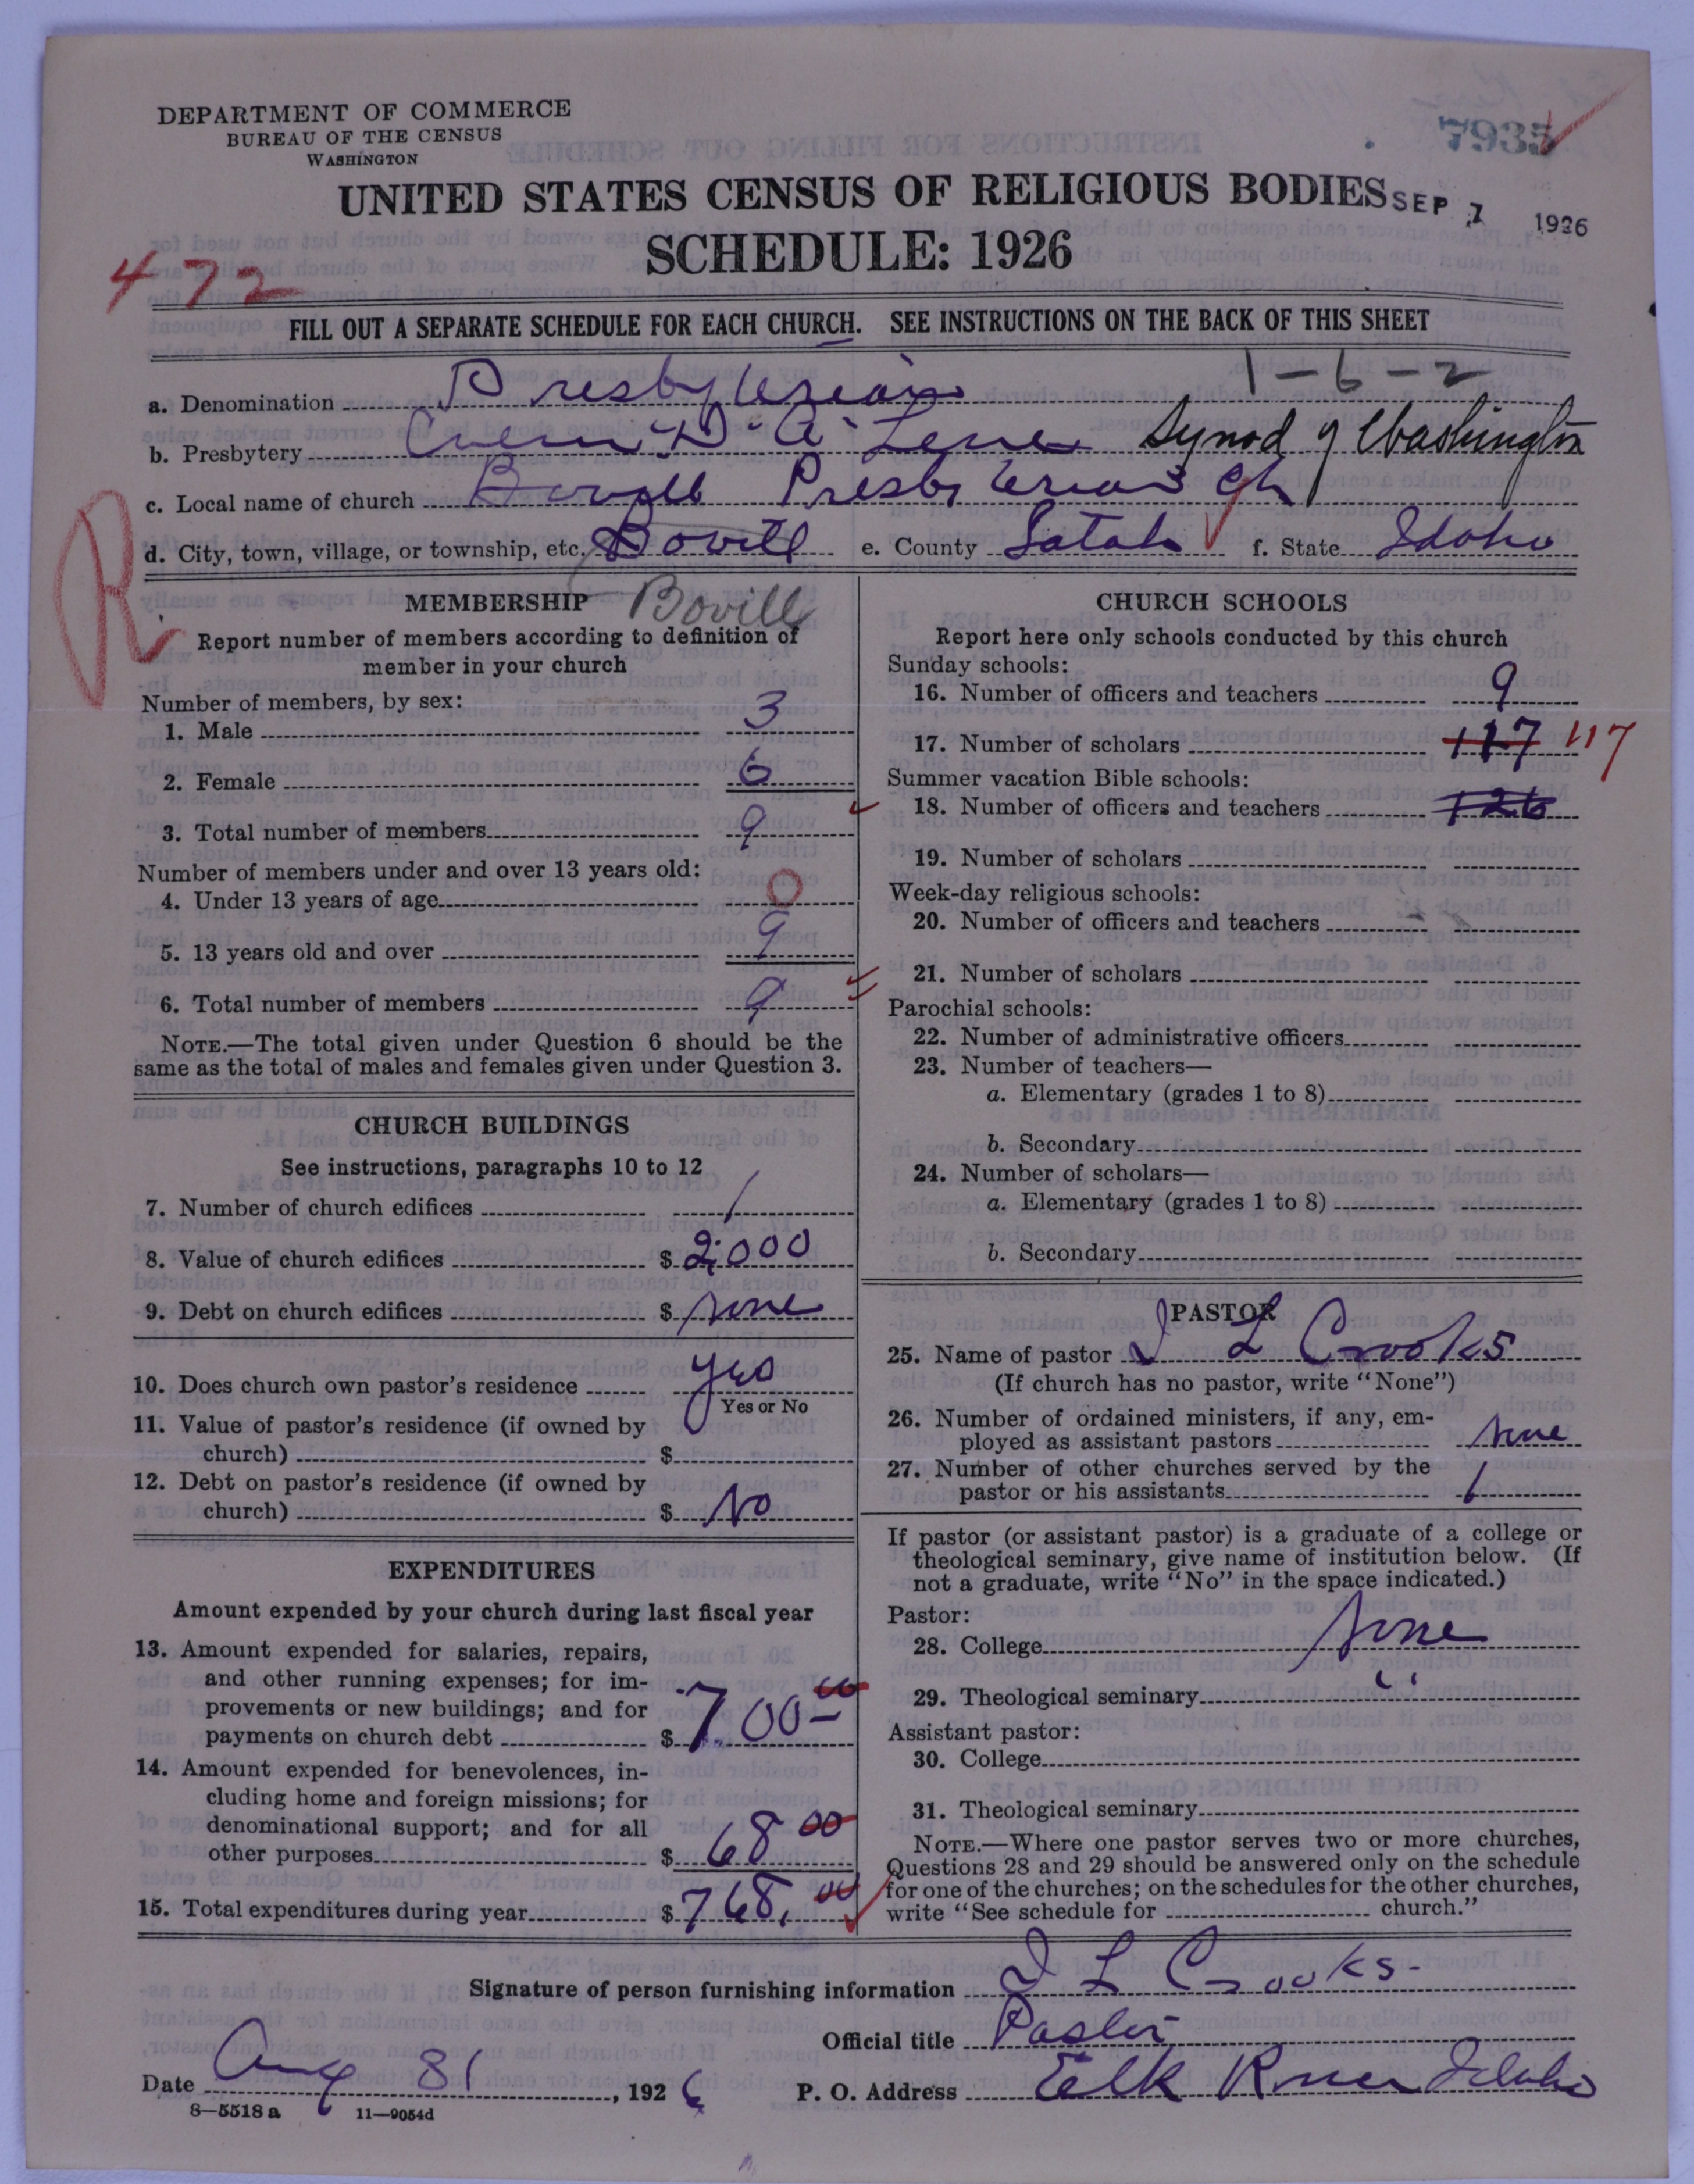 DEPARTMENT OF COMMERCE
BUREAU OF THE CENSUS
WASHINGTON
7935
UNITED STATES CENSUS OF RELIGIOUS BODIES
SEP 7 1926
SCHEDULE: 1926
472
FILL OUT A SEPARATE SCHEDULE FOR EACH CHURCH. SEE INSTRUCTIONS ON THE BACK OF THIS SHEET
1-6-2
a. Denomination Presbyterian
b. Presbytery D'A Lene Synod of Washington
c. Local name of church Bovill Presbyterian Ch
d. City, town, village, or township, etc. Bovill e. County Latah f. State Idaho
R
MEMBERSHIP Bovill
Report number of members according to definition of
member in your church
Number of members, by sex:
1. Male 3
2. Female 6
3. Total number of members 9
Number of members under and over 13 years old:
4. Under 13 years of age 0
5. 13 years old and over 9
6. Total number of members 9
NOTE.—The total given under Question 6 should be the
same as the total of males and females given under Question 3.
CHURCH BUILDINGS
See instructions, paragraphs 10 to 12
7. Number of church edifices 1
8. Value of church edifices $ 2,000
9. Debt on church edifices $ None
10. Does church own pastor's residence yes
Yes or No
11. Value of pastor's residence (if owned by
church) $
12. Debt on pastor's residence (if owned by
church) $ No
EXPENDITURES
Amount expended by your church during last fiscal year
13. Amount expended for salaries, repairs,
and other running expenses; for im-
provements or new buildings; and for
payments on church debt $ 700 00
14. Amount expended for benevolences, in-
cluding home and foreign missions; for
denominational support; and for all
other purposes $ 68 00
15. Total expenditures during year $ 768.00
CHURCH SCHOOLS
Report here only schools conducted by this church
Sunday schools:
16. Number of officers and teachers 9
17. Number of scholars 117 117
Summer vacation Bible schools:
18. Number of officers and teachers 126
19. Number of scholars
Week-day religious schools:
20. Number of officers and teachers
21. Number of scholars
Parochial schools:
22. Number of administrative officers
23. Number of teachers—
a. Elementary (grades 1 to 8)
b. Secondary
24. Number of scholars—
a. Elementary (grades 1 to 8)
b. Secondary
PASTOR
25. Name of pastor J L Crooks
(If church has no pastor, write "None")
26. Number of ordained ministers, if any, em-
ployed as assistant pastors None
27. Number of other churches served by the
pastor or his assistants 1
If pastor (or assistant pastor) is a graduate of a college or
theological seminary, give name of institution below. (If
not a graduate, write "No" in the space indicated.)
Pastor:
28. College None
29. Theological seminary "
Assistant pastor:
30. College
31. Theological seminary
NOTE.—Where one pastor serves two or more churches,
Questions 28 and 29 should be answered only on the schedule
for one of the churches; on the schedules for the other churches,
write "See schedule for church."
Signature of person furnishing information J L Crooks-
Official title Pastor
Date Aug 31, 1926 P. O. Address Elk River Idaho
8—5518 a 11—9054d